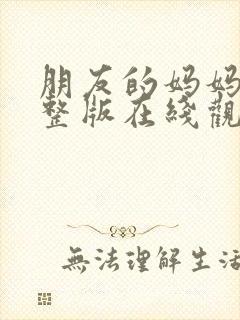 朋友的妈妈
整版在綫觀
無法理解生活